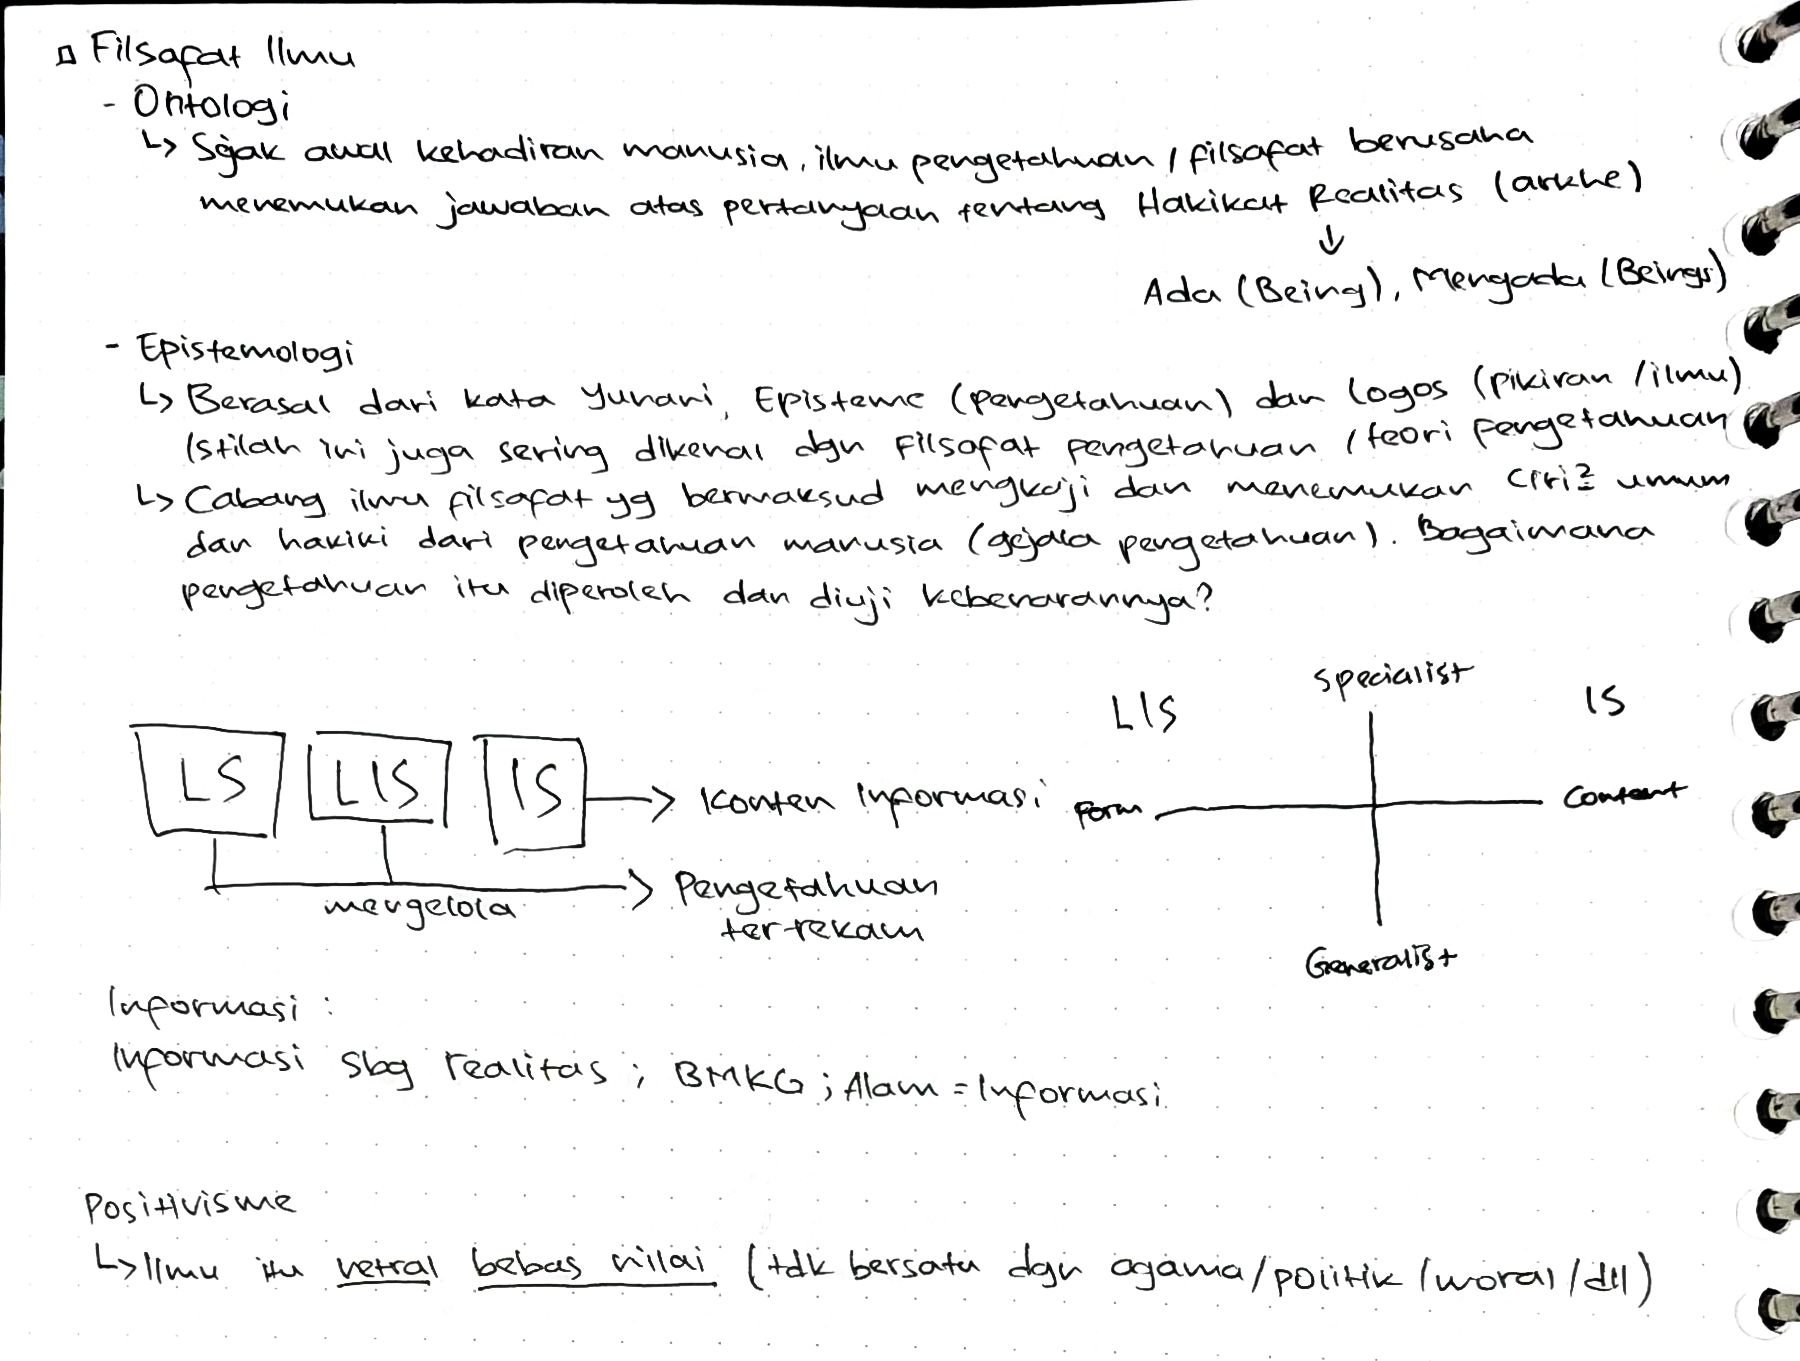 Filsafat Ilmu
- Ontologi
↳ Sejak awal kehadiran manusia, ilmu pengetahuan / filsafat berusaha
menemukan jawaban atas pertanyaan tentang Hakikat Realitas (arkhe)
↓
Ada (Being), Mengada (Beings)
- Epistemologi
↳ Berasal dari kata Yunani, Episteme (pengetahuan) dan Logos (pikiran / ilmu)
Istilah ini juga sering dikenal dgn Filsafat pengetahuan / teori pengetahuan
↳ Cabang ilmu filsafat yg bermaksud mengkaji dan menemukan ciri2 umum
dan hakiki dari pengetahuan manusia (gejala pengetahuan). Bagaimana
pengetahuan itu diperoleh dan diuji kebenarannya?
LS LIS IS → Konten Informasi
mengelola → Pengetahuan
terrekam
Specialist
LIS IS
Form Content
Generalist
Informasi :
Informasi sbg realitas ; BMKG ; Alam = Informasi
Positivisme
↳ Ilmu itu netral bebas nilai (tdk bersatu dgn agama/politik/moral/dll)